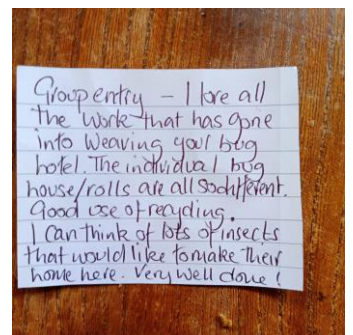 Group entry - I love all
the work that has gone
into weaving your bug
hotel. The individual bug
house/rolls are all so different.
Good use of recycling.
I can think of lots of insects
that would like to make their
home here. Very well done!